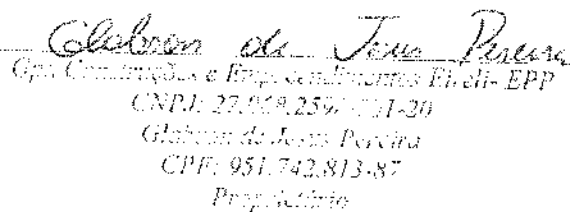 Glabson de Jesus Pereira
Gps Construções e Empreendimentos Eireli- EPP
CNPJ: 27.069.259/ -20
Glabson de Jesus Pereira
CPF: 951.742.813-87
Proprietário